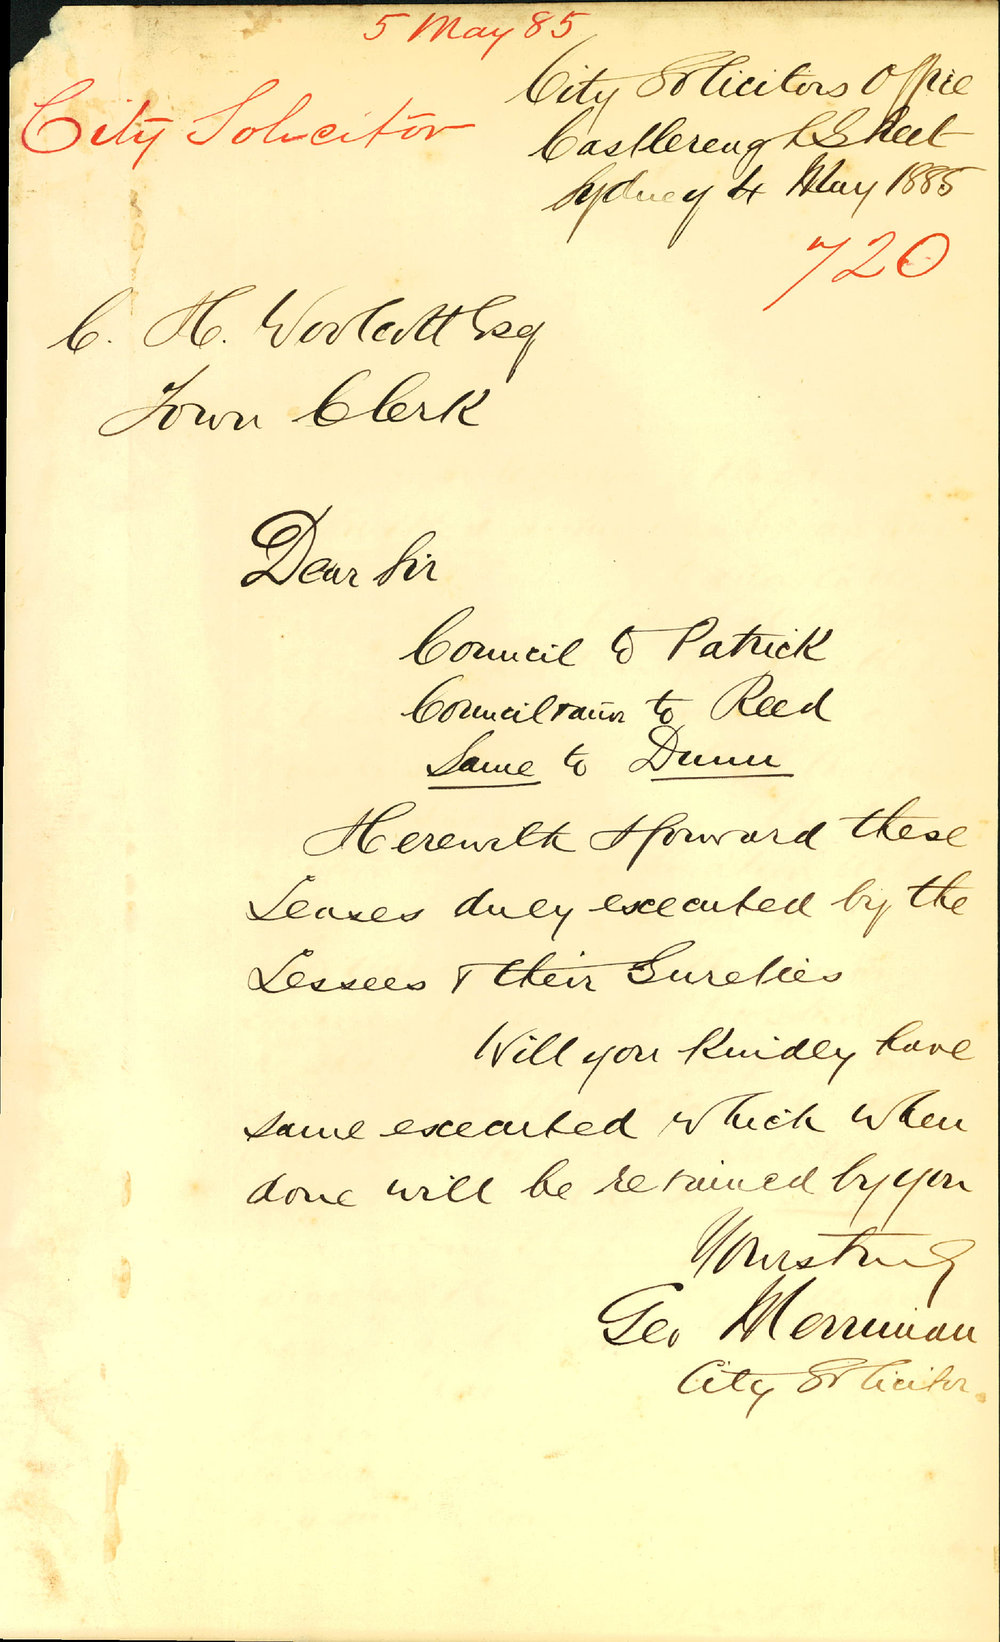 5 May 85
City Solicitor
City Solicitors Office
Castlereagh Street
Sydney 4 May 1885
720
C. H. Woolcott Esq
Town Clerk
Dear Sir
Council to Patrick
Council & anor to Reed
Same to Dunn
Herewith I forward these
Leases duly executed by the
Lessees & their Sureties
Will you kindly have
same executed which when
done will be retained by you
Yours truly
Geo Merriman
City Solicitor